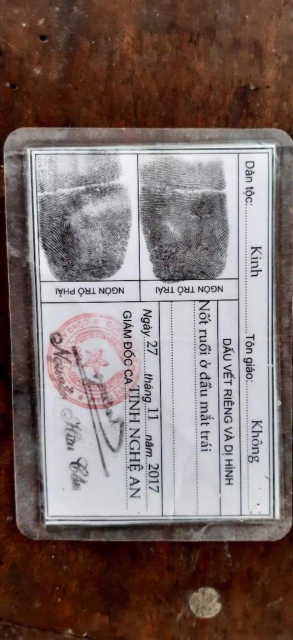 Dân tộc: Kinh Tôn giáo: Không
DẤU VẾT RIÊNG VÀ DỊ HÌNH
Nốt ruồi ở đấu mắt trái
NGÓN TRỎ TRÁI
NGÓN TRỎ PHẢI
Ngày 27 tháng 11 năm 2017
GIÁM ĐỐC CA TỈNH NGHỆ AN